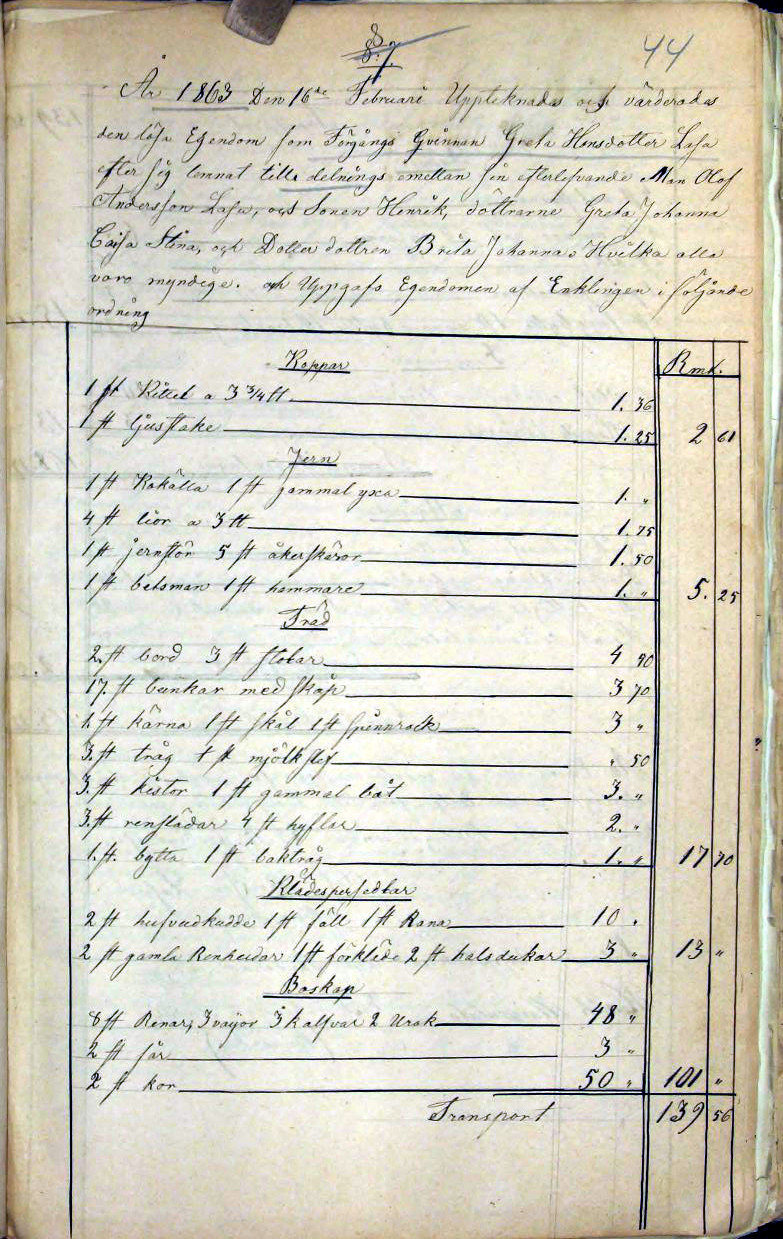 8
8.7.
44
År 1863 Den 16de Februari Upptecknades och värderades
den lösa Egendom som Förgångs Qvinnan Greta Hansdotter Lasa
efter sig lemnat till delnings emellan sin efterlefvande Man Olof
Andersson Lasa, och Sonen Henrik, döttrarne Greta Johanna
Caisa Stina, och Dotter dottren Brita Johanna Hvilka alla
voro myndige. och Uppgafs Egendomen af Enklingen i följande
ordning
Koppar Rmt.
1 st Kittel a 3 3/4 tt 1. 36
1 st Ljusstake 1. 25 2 61
Jern
1 st Kokälla 1 st gammal yxa 1. "
4 st lior a 3 tt 1. 75
1 st jernstör 5 st åkerskäror 1. 50
1 st betsman 1 st hammare 1. " 5. 25
Träd
2. st bord 3 st stolar 4 90
17. st bunkar med skåp 3 70
1. st kärna 1 st skål 1 st spinnrock 3 "
3. st tråg 1 st mjölk " 50
3. st kistor 1 st gammal båt 3. "
3. st renslädar 4 st hyflar 2. "
1. st. bytta 1 st baktråg 1. " 17 70
Klädespersedlar
2 st hufvudkudde 1 st fäll 1 st Rana 10 "
2 st gamla Renhudar 1 st förkläde 2 st halsdukar 3 " 13 "
Boskap
8 st Renar, 3 vajor 3 kalfvar 2 Urak 48 "
2 st får 3 "
2 st kor 50 " 101 "
Transport 139 56